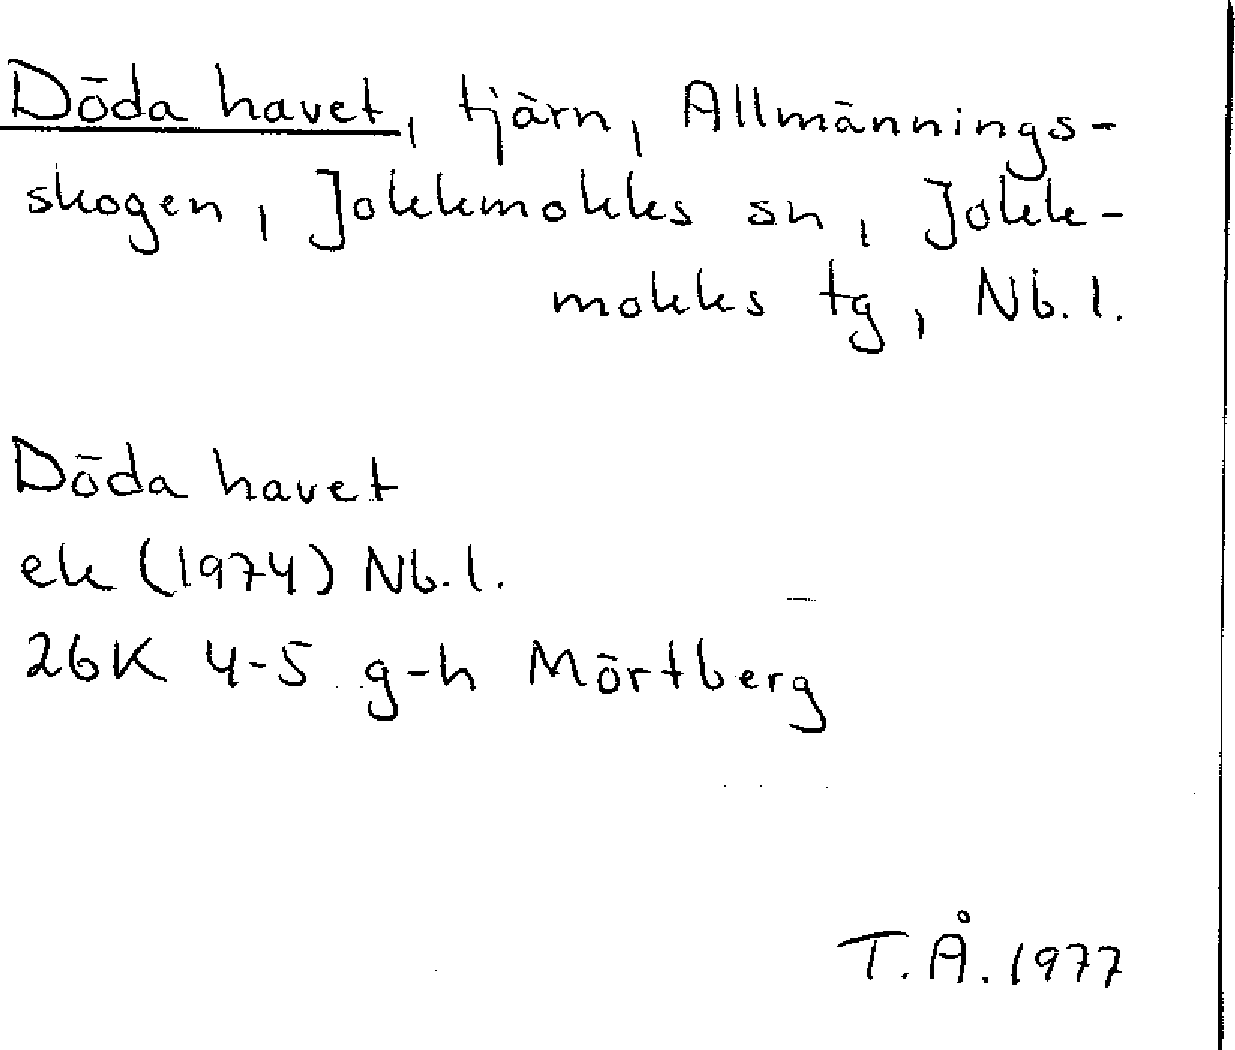 Döda havet, tjärn, Allmännings-
skogen, Jokkmokks sn, Jokk-
mokks tg, Nb. l.
Döda havet
ek (1974) Nb. l.
26K 4-5 g-h Mörtberg
T. Å. 1977